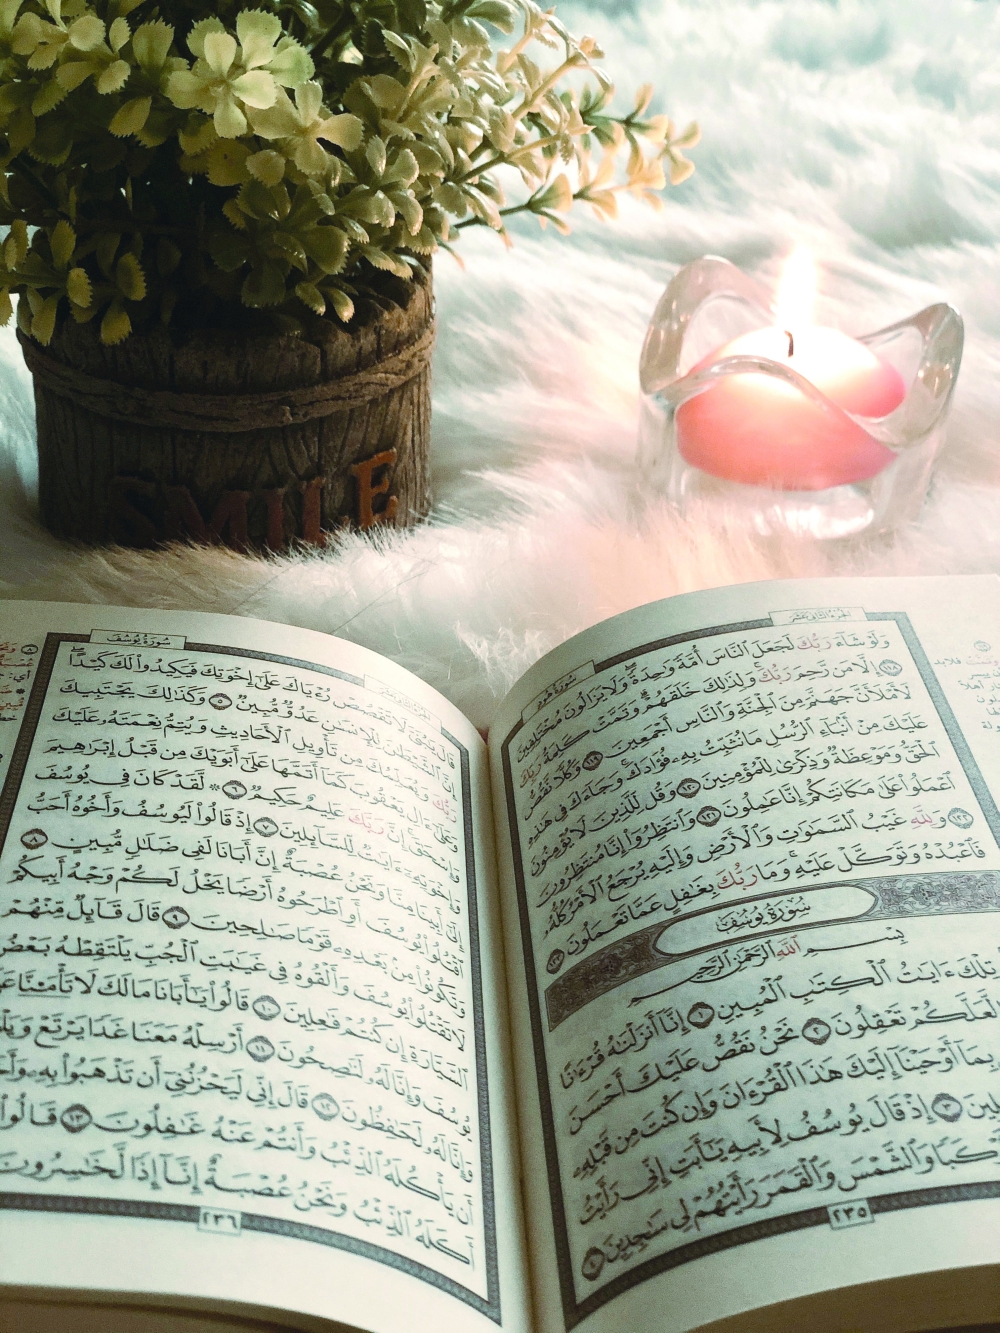 الجزء الثاني عشر
سورة هود
وَلَوْ شَآءَ رَبُّكَ لَجَعَلَ ٱلنَّاسَ أُمَّةً وَٰحِدَةً ۖ وَلَا يَزَالُونَ مُخْتَلِفِينَ
١١٨ إِلَّا مَن رَّحِمَ رَبُّكَ ۚ وَلِذَٰلِكَ خَلَقَهُمْ ۗ وَتَمَّتْ كَلِمَةُ رَبِّكَ
لَأَمْلَأَنَّ جَهَنَّمَ مِنَ ٱلْجِنَّةِ وَٱلنَّاسِ أَجْمَعِينَ ١١٩ وَكُلًّا نَّقُصُّ
عَلَيْكَ مِنْ أَنۢبَآءِ ٱلرُّسُلِ مَا نُثَبِّتُ بِهِۦ فُؤَادَكَ ۚ وَجَآءَكَ فِى هَٰذِهِ
ٱلْحَقُّ وَمَوْعِظَةٌ وَذِكْرَىٰ لِلْمُؤْمِنِينَ ١٢٠ وَقُل لِّلَّذِينَ لَا يُؤْمِنُونَ
ٱعْمَلُوا۟ عَلَىٰ مَكَانَتِكُمْ إِنَّا عَٰمِلُونَ ١٢١ وَٱنتَظِرُوٓا۟ إِنَّا مُنتَظِرُونَ
١٢٢ وَلِلَّهِ غَيْبُ ٱلسَّمَٰوَٰتِ وَٱلْأَرْضِ وَإِلَيْهِ يُرْجَعُ ٱلْأَمْرُ كُلُّهُۥ
فَٱعْبُدْهُ وَتَوَكَّلْ عَلَيْهِ ۚ وَمَا رَبُّكَ بِغَٰفِلٍ عَمَّا تَعْمَلُونَ ١٢٣
سُورَةُ يُوسُفَ
بِسْمِ ٱللَّهِ ٱلرَّحْمَٰنِ ٱلرَّحِيمِ
تِلْكَ ءَايَٰتُ ٱلْكِتَٰبِ ٱلْمُبِينِ ١ إِنَّآ أَنزَلْنَٰهُ قُرْءَٰنًا
لَّعَلَّكُمْ تَعْقِلُونَ ٢ نَحْنُ نَقُصُّ عَلَيْكَ أَحْسَنَ
بِمَآ أَوْحَيْنَآ إِلَيْكَ هَٰذَا ٱلْقُرْءَانَ وَإِن كُنتَ مِن قَبْلِهِۦ
لِينَ ٣ إِذْ قَالَ يُوسُفُ لِأَبِيهِ يَٰٓأَبَتِ إِنِّى رَأَيْتُ
كَبًا وَٱلشَّمْسَ وَٱلْقَمَرَ رَأَيْتُهُمْ لِى سَٰجِدِينَ ٤
٢٣٥
سُورَةُ يُوسُفَ
قَالَ يَٰبُنَىَّ لَا تَقْصُصْ رُءْيَاكَ عَلَىٰٓ إِخْوَتِكَ فَيَكِيدُوا۟ لَكَ كَيْدًا ۖ
إِنَّ ٱلشَّيْطَٰنَ لِلْإِنسَٰنِ عَدُوٌّ مُّبِينٌ ٥ وَكَذَٰلِكَ يَجْتَبِيكَ
رَبُّكَ وَيُعَلِّمُكَ مِن تَأْوِيلِ ٱلْأَحَادِيثِ وَيُتِمُّ نِعْمَتَهُۥ عَلَيْكَ
وَعَلَىٰٓ ءَالِ يَعْقُوبَ كَمَآ أَتَمَّهَا عَلَىٰٓ أَبَوَيْكَ مِن قَبْلُ إِبْرَٰهِيمَ
وَإِسْحَٰقَ ۚ إِنَّ رَبَّكَ عَلِيمٌ حَكِيمٌ ٦ ۞ لَّقَدْ كَانَ فِى يُوسُفَ
وَإِخْوَتِهِۦٓ ءَايَٰتٌ لِّلسَّآئِلِينَ ٧ إِذْ قَالُوا۟ لَيُوسُفُ وَأَخُوهُ أَحَبُّ
إِلَىٰٓ أَبِينَا مِنَّا وَنَحْنُ عُصْبَةٌ إِنَّ أَبَانَا لَفِى ضَلَٰلٍ مُّبِينٍ ٨
ٱقْتُلُوا۟ يُوسُفَ أَوِ ٱطْرَحُوهُ أَرْضًا يَخْلُ لَكُمْ وَجْهُ أَبِيكُمْ
وَتَكُونُوا۟ مِنۢ بَعْدِهِۦ قَوْمًا صَٰلِحِينَ ٩ قَالَ قَآئِلٌ مِّنْهُمْ
لَا تَقْتُلُوا۟ يُوسُفَ وَأَلْقُوهُ فِى غَيَٰبَتِ ٱلْجُبِّ يَلْتَقِطْهُ بَعْضُ
ٱلسَّيَّارَةِ إِن كُنتُمْ فَٰعِلِينَ ١٠ قَالُوا۟ يَٰٓأَبَانَا مَا لَكَ لَا تَأْمَ۫نَّا عَلَىٰ
يُوسُفَ وَإِنَّا لَهُۥ لَنَٰصِحُونَ ١١ أَرْسِلْهُ مَعَنَا غَدًا يَرْتَعْ وَيَلْعَبْ
وَإِنَّا لَهُۥ لَحَٰفِظُونَ ١٢ قَالَ إِنِّى لَيَحْزُنُنِىٓ أَن تَذْهَبُوا۟ بِهِۦ وَأَخَافُ
أَن يَأْكُلَهُ ٱلذِّئْبُ وَأَنتُمْ عَنْهُ غَٰفِلُونَ ١٣ قَالُوا۟
أَكَلَهُ ٱلذِّئْبُ وَنَحْنُ عُصْبَةٌ إِنَّآ إِذًا لَّخَٰسِرُونَ
٢٣٦
SMILE